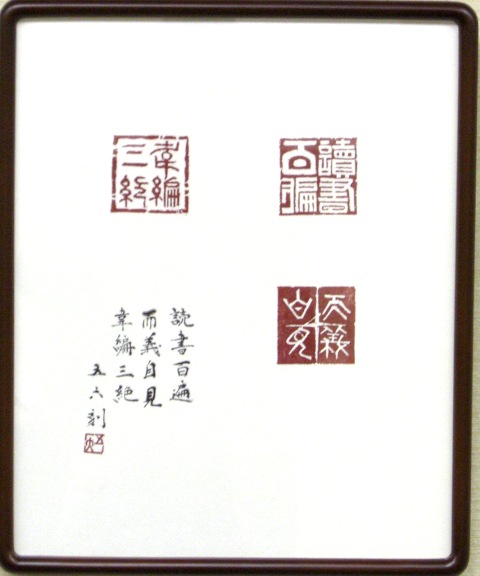 讀書
百徧
而義
自見
韋編
三絶
読書百遍
而義自見
韋編三絶
五六刻